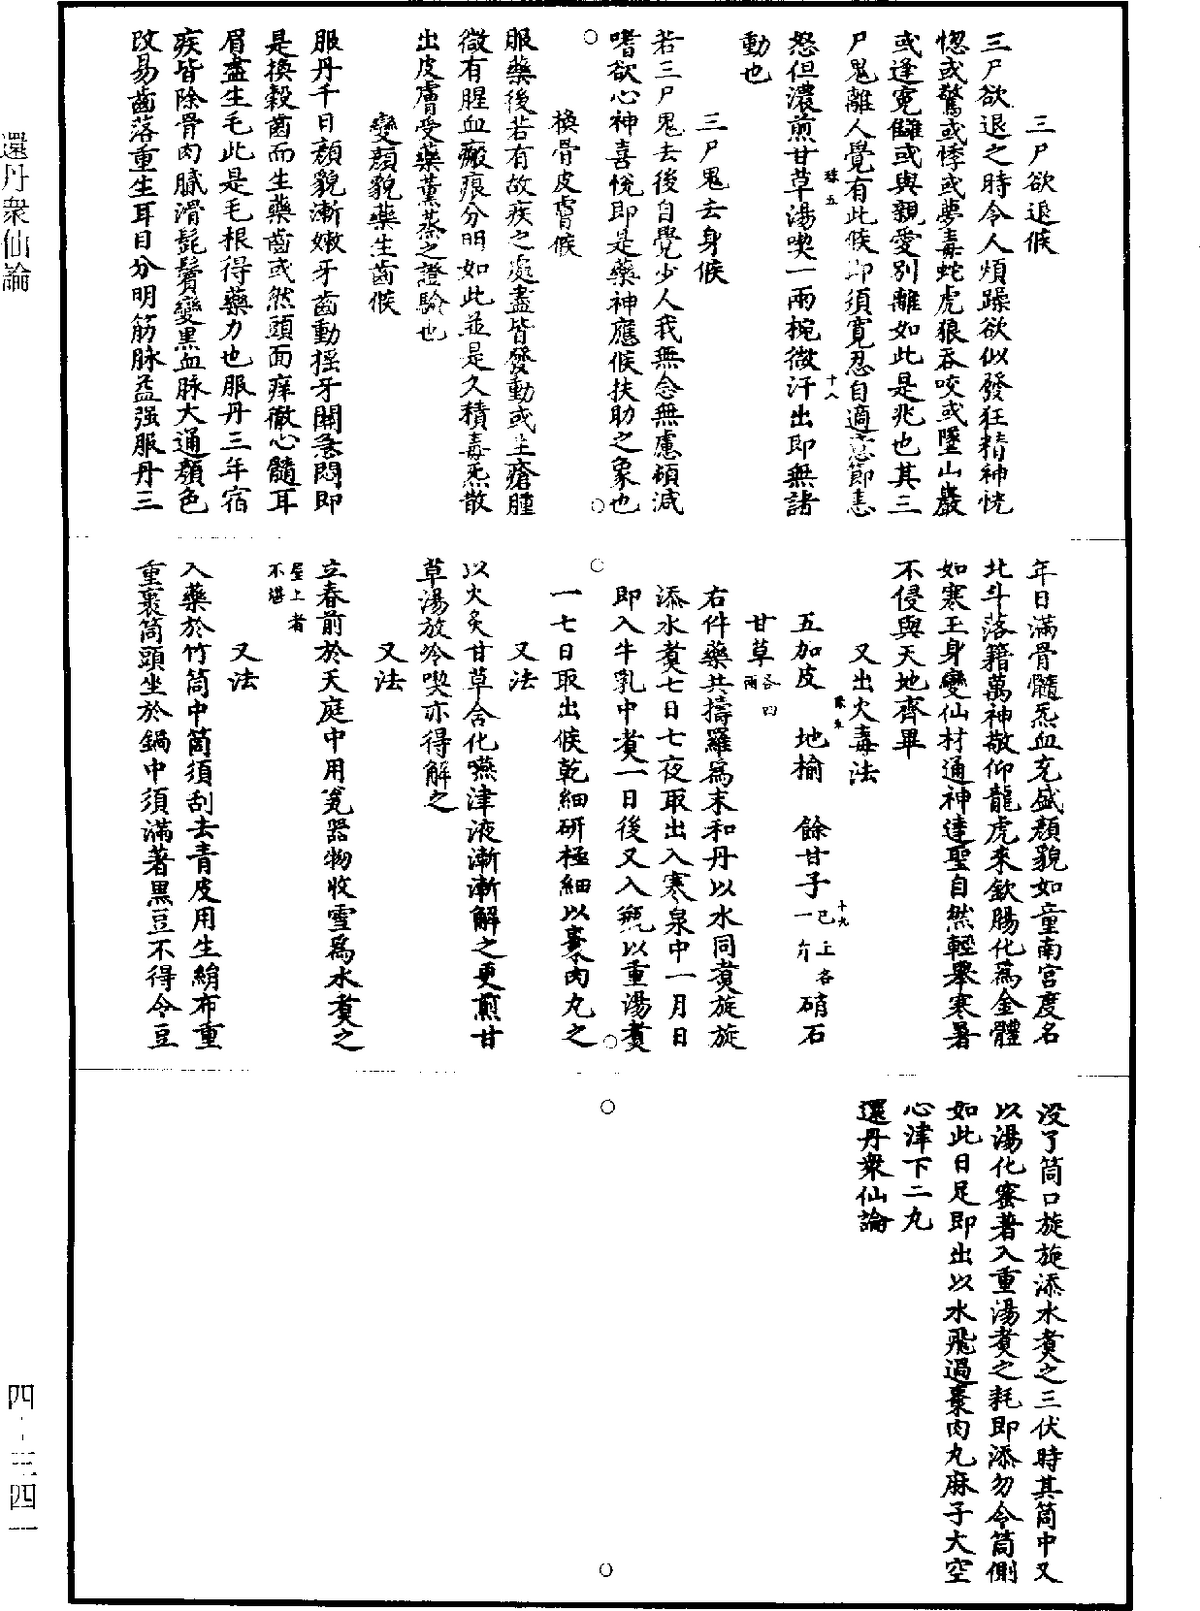 三尸欲退候
三尸欲退之時令人煩躁欲似發狂精神恍
惚或驚或悸或夢毒蛇虎狼吞咬或墜山巖
或逢寃讎或與親愛別離如此是兆也其三
尸鬼離人覺有此候即須寬忍自適意節恚
怒但濃煎甘草湯喫一兩椀微汗出即無諸
動也
三尸鬼去身候
若三尸鬼去後自覺少人我無念無慮頓減
嗜欲心神喜悅即是藥神應候扶助之象也
換骨皮膚候
服藥後若有故疾之處盡皆發動或生瘡腫
微有腥血瘢痕分明如此並是久積毒炁散
出皮膚受藥薰蒸之證驗也
變顏貌藥生齒候
服丹千日顏貌漸嫩牙齒動搖牙關急悶即
是換穀齒而生藥齒或然頭面痒徹心髓耳
眉盡生毛此是毛根得藥力也服丹三年宿
疾皆除骨肉膩滑髭鬢變黑血脉大通顏色
改易齒落重生耳目分明筋脉益强服丹三
年日滿骨髓炁血充盛顏貌如童南宮度名
北斗落籍萬神敬仰龍虎來欽腸化爲金體
如寒玉身變仙材通神達聖自然輕舉寒暑
不侵與天地齊畢
又出火毒法
五加皮 地榆 餘甘子已上各一斤 硝石
甘草各四兩
右件藥共擣羅爲末和丹以水同煑旋旋
添水煑七日七夜取出入寒泉中一月日
即入牛乳中煑一日後又入甁以重湯煑
一七日取出候乾細研極細以棗肉丸之
又法
以火炙甘草含化嚥津液漸漸解之更煎甘
草湯放冷喫亦得解之
又法
立春前於天庭中用瓷器物收雪爲水煑之
屋上者不堪
又法
入藥於竹筒中筒須刮去青皮用生絹布重
重裹筒頭坐於鍋中須滿著黑豆不得令豆
没了筒口旋旋添水煑之三伏時其筒中又
以湯化蜜著入重湯煑之耗即添勿令筒側
如此日足即出以水飛過棗肉丸麻子大空
心津下二丸
還丹衆仙論
十八
十九
還丹衆仙論
四--三四一